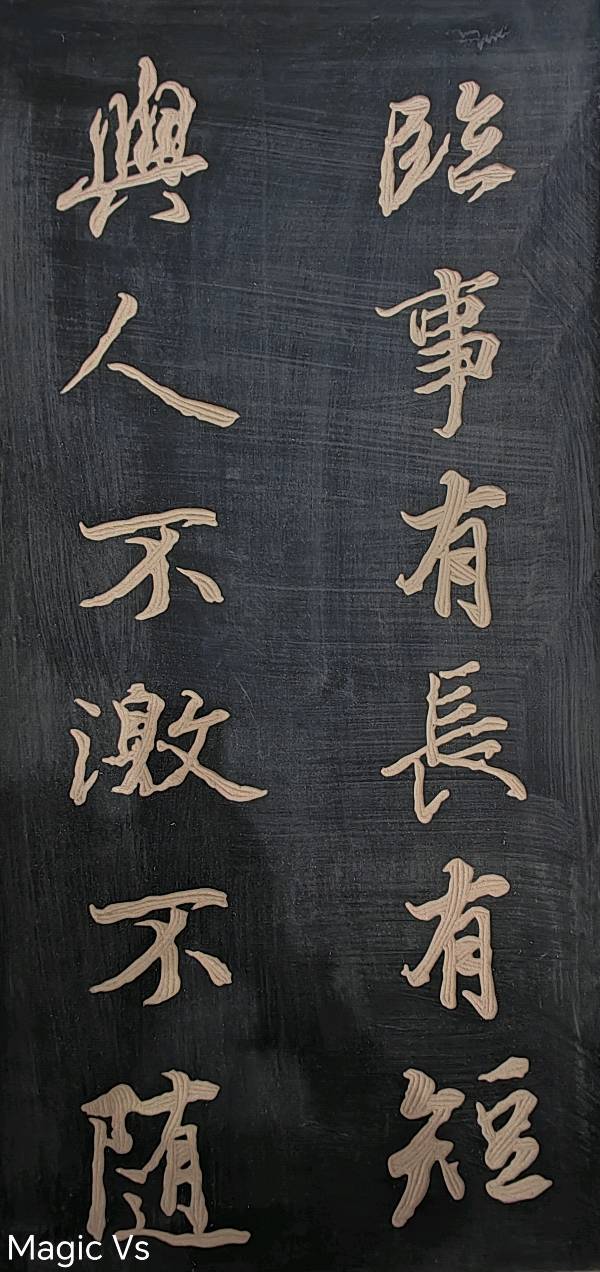 臨事有長有短
與人不激不随
Magic Vs